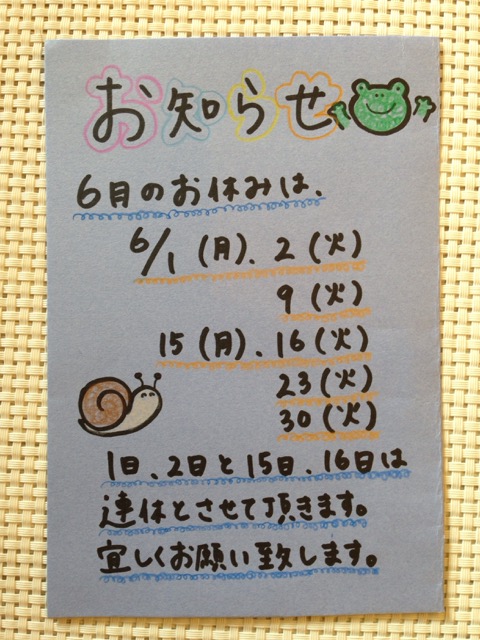 お知らせ
6月のお休みは、
6/1(月)、2(火)
9(火)
15(月)、16(火)
23(火)
30(火)
1日、2日と15日、16日は
連休とさせて頂きます。
宜しくお願い致します。